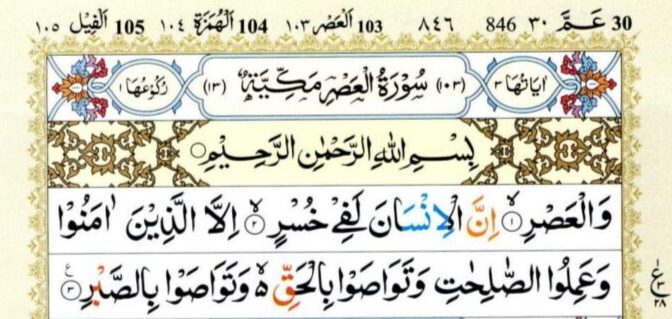 30 عَـمَّ ٣٠ 846 ٨٤٦ 103 اَلْعَصْر ١٠٣ 104 اَلْهُمَزَة ١٠٤ 105 اَلْفِيْل ١٠٥
اٰيَاتُهَا ٣ (١٠٣) سُوْرَةُ الْعَصْرِ مَكِّيَّةٌ (١٣) رُكُوْعُهَا ١
بِسْمِ اللّٰهِ الرَّحْمٰنِ الرَّحِيْمِ
وَالْعَصْرِ ۙ‏ ١ اِنَّ الْاِنْسَانَ لَفِىْ خُسْرٍ ۙ‏ ٢ اِلَّا الَّذِيْنَ اٰمَنُوْا
وَعَمِلُوا الصّٰلِحٰتِ وَتَوَاصَوْا بِالْحَقِّ ۙ وَتَوَاصَوْا بِالصَّبْرِ ٣ ع
ع ١ ٣ ٢٨